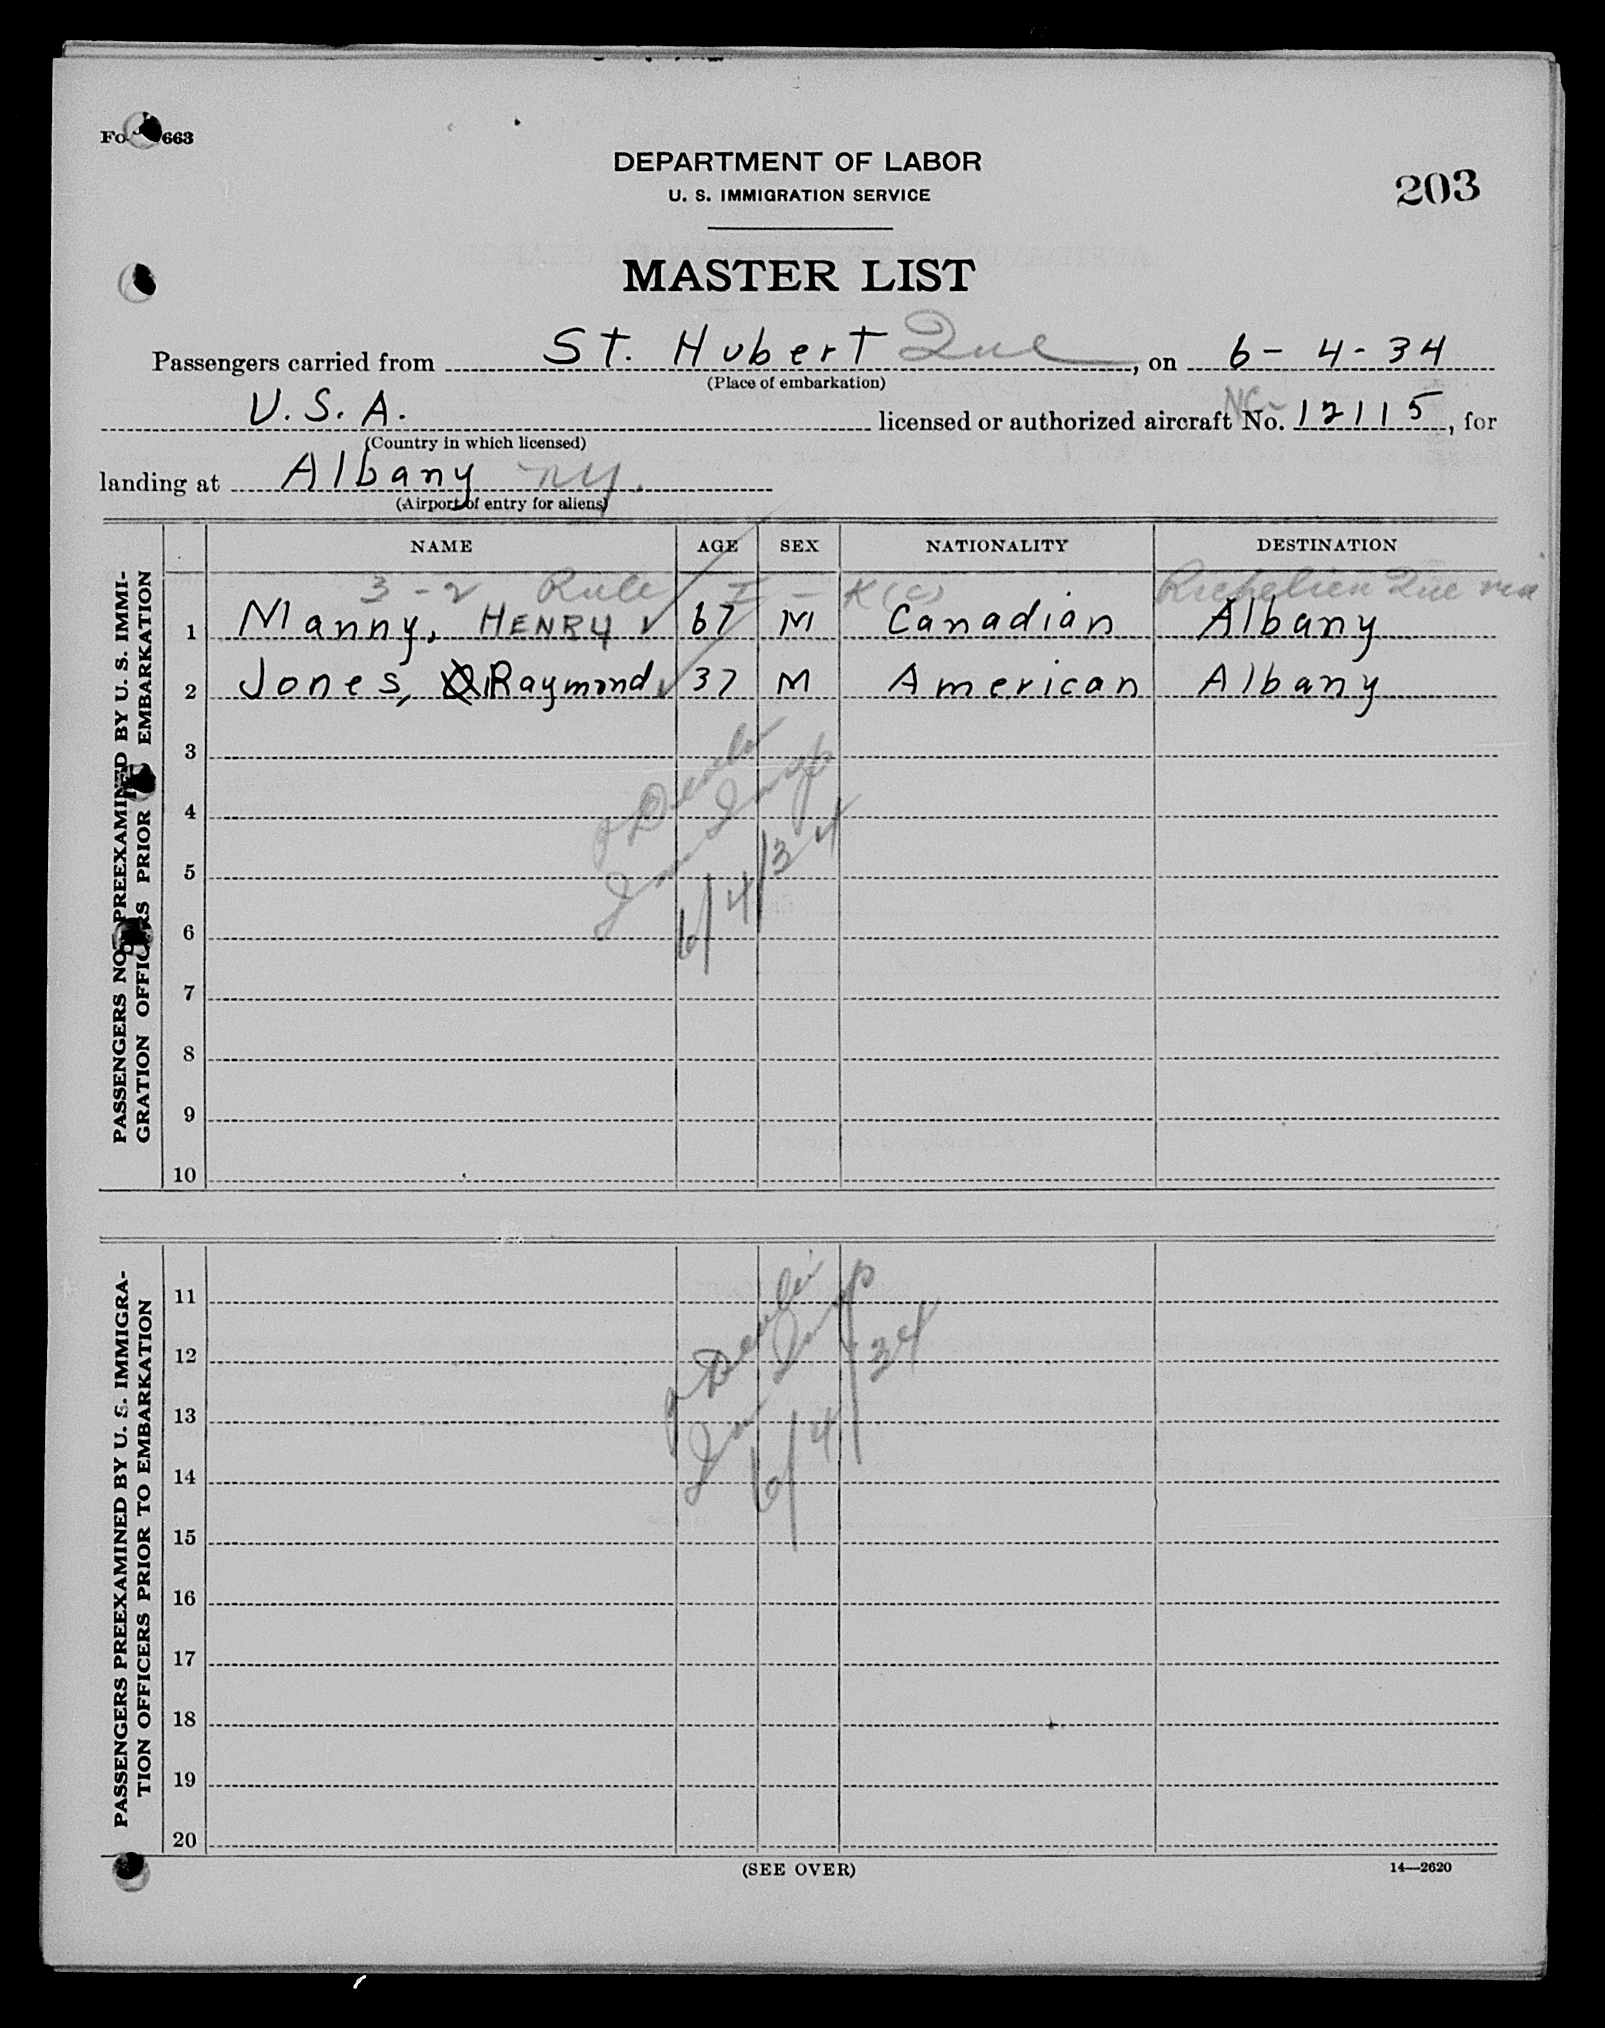 Fo 663
DEPARTMENT OF LABOR
U. S. IMMIGRATION SERVICE
203
MASTER LIST
Passengers carried from St. Hubert Que, on 6-4-34
(Place of embarkation)
U.S.A. licensed or authorized aircraft No. NC- 12115, for
(Country in which licensed)
landing at Albany NY.
(Airport of entry for aliens)
NAME AGE SEX NATIONALITY DESTINATION
3-2 Rule I - K(c) Richelieu Que via
1 Manny, HENRY 67 M Canadian Albany
2 Jones, Raymond 37 M American Albany
3
4
5
6
7
8
9
10
Imm Insp
6/4/34
PASSENGERS NO PREEXAMINED BY U. S. IMMI-
GRATION OFFICERS PRIOR EMBARKATION
11
12
13
14
15
16
17
18
19
20
Imm Insp
6/4/34
PASSENGERS PREEXAMINED BY U. S. IMMIGRA-
TION OFFICERS PRIOR TO EMBARKATION
(SEE OVER)
14—2620